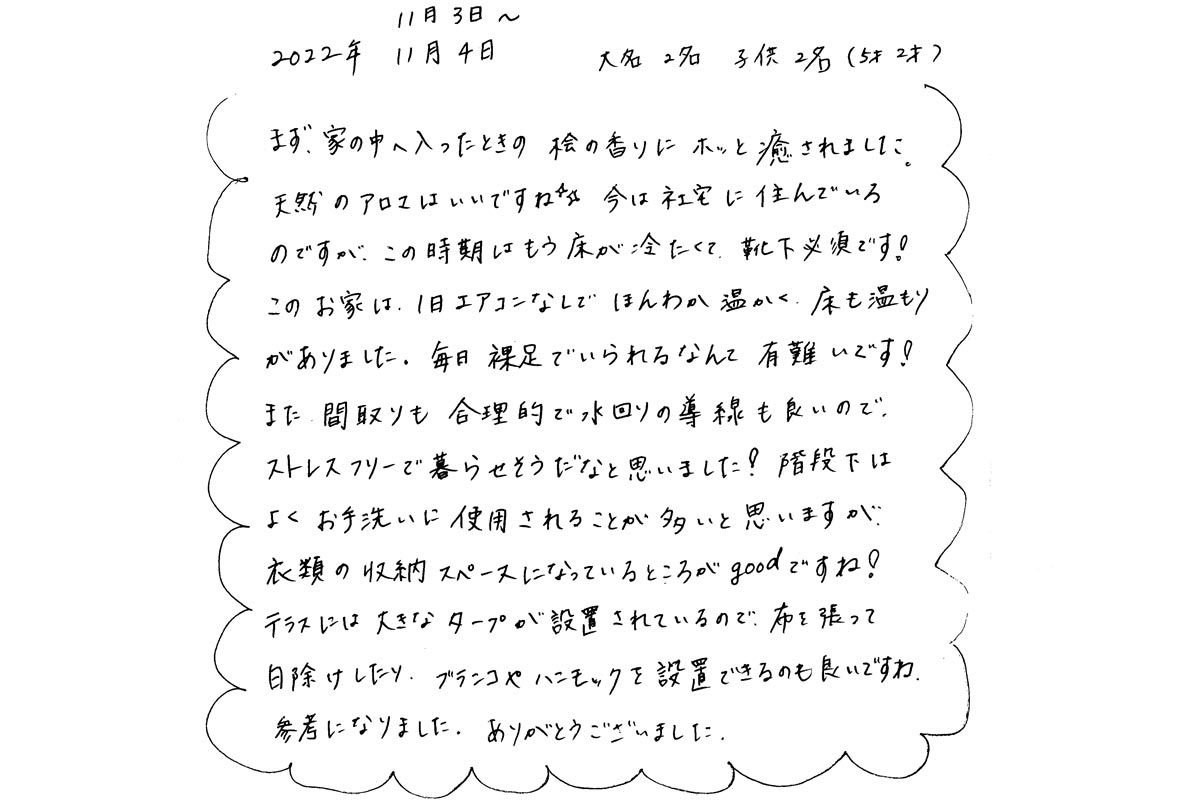 11月3日～
2022年 11月4日 大名 2名 子供 2名（5才 2才）
まず、家の中へ入ったときの 桧の香りに ホッと 癒されました。
天然のアロマはいいですね☆☆ 今は社宅に住んでいる
のですが、この時期はもう床が冷たくて、靴下必須です！
このお家は、1日エアコンなしで ほんわか温かく、床も温もり
がありました。毎日 裸足でいられるなんて 有難いです！
また 間取りも 合理的で水回りの導線も良いので、
ストレスフリーで暮らせそうだなと思いました！ 階段下は
よく お手洗いに 使用されることが多いと思いますが、
衣類の収納スペースになっているところがgoodですね！
テラスには大きなタープが設置されているので、布を張って
日除けしたり、ブランコやハンモックを設置できるのも良いですね。
参考になりました。ありがとうございました。